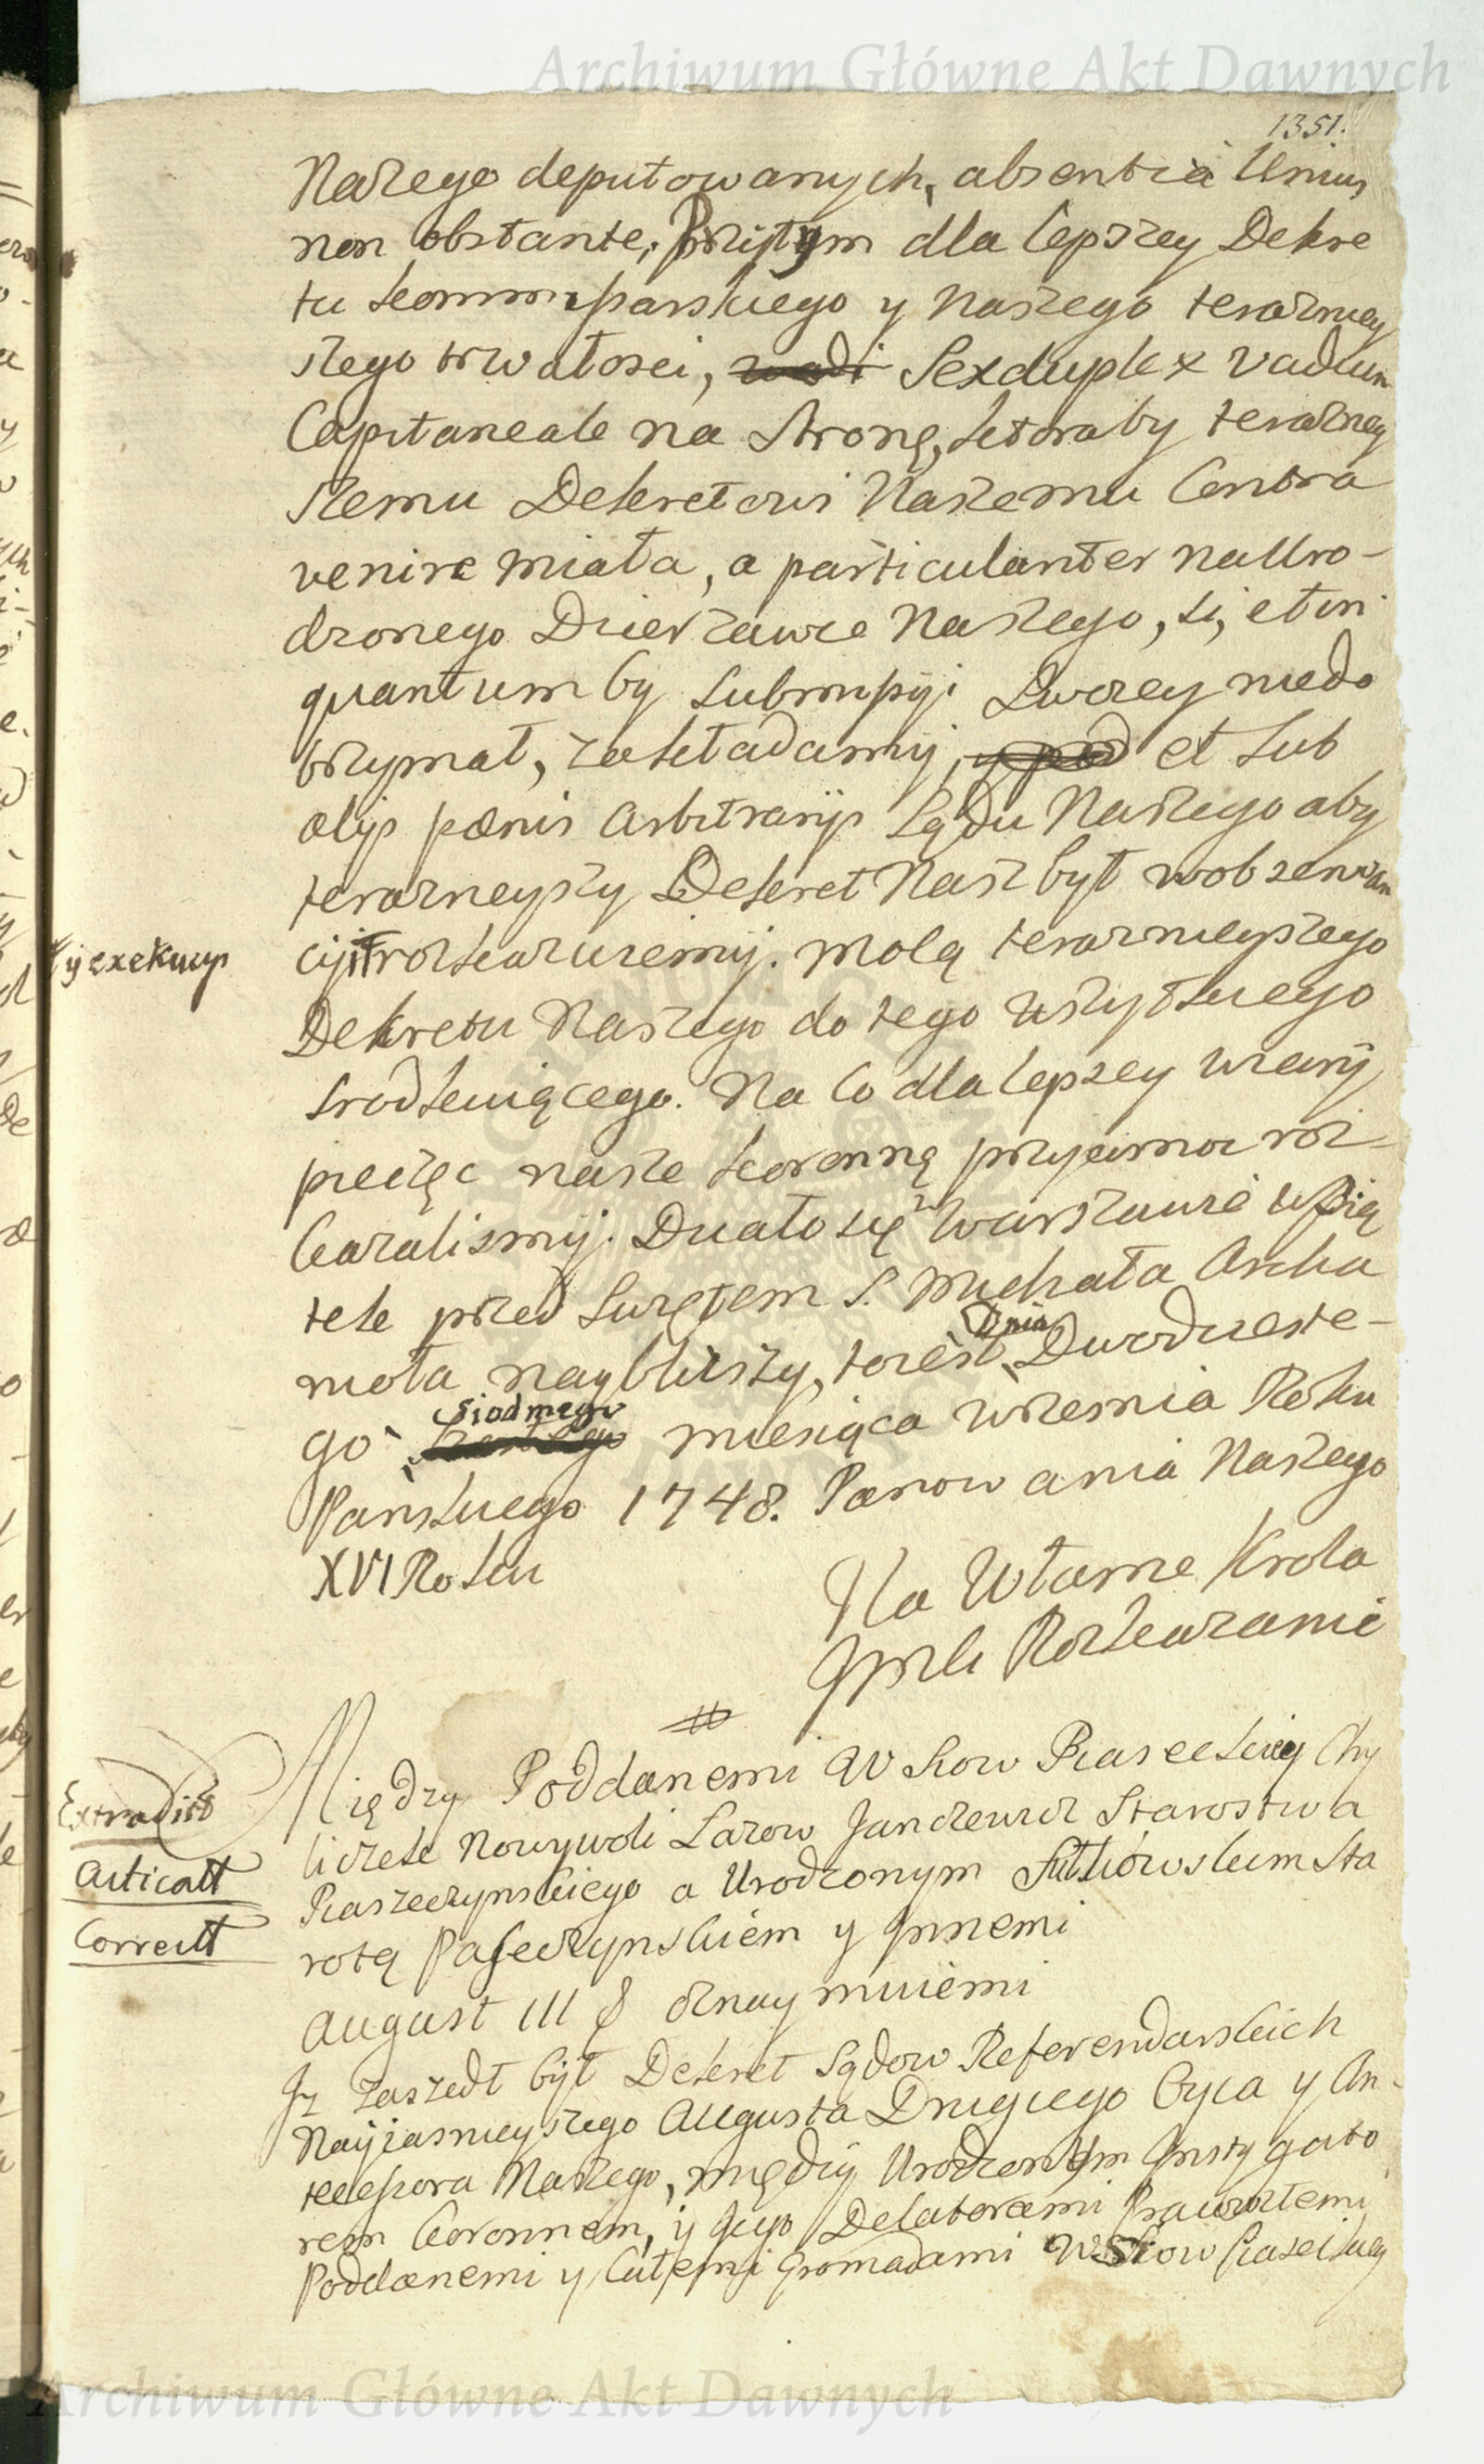 Archiwum Główne Akt Dawnych
1351.
Naszego deputowanych, absentia Unius
non obstante, Przytym dla lepszey Dekre
tu kommissarskiego y Naszego terazniey
szego trwałosci, Sexduplex Vadium
Capitaneale na Stronę, ktoraby terazniey
szemu Dekretowi Naszemu Contra
venire miała, a particulariter na Uro-
dzonego Dzierzawce Naszego, si, et in
quantum by submissyi Swoiey niedo
trzymał, zakładamy, et sub
alijs pænis arbitrarijs Sądu Naszego aby
teraznieyszy Dekret Nasz był w obserwan
cyi rozkazuiemy. Mocą teraznieyszego
y exekucyi
Dekretu Naszego do tego wszystkiego
srodkuiącego. Na co dla lepszey wiary
pieczęc nasze koronną przycisnoc roz-
kazalismy. Działo się w Warszawie w Pią
tek przed Swiętem S. Michała Archa
nioła nayblizszy, to iest Dnia Dwudzieste-
go siodmego miesiąca wrzesnia Roku
Panskiego 1748. Panowania Naszego
XVI Roku
Na Własne Krola
Jmsci Rozkazanie
Między Poddanemi Wsiow Piaseckiey Chy
liczek Nowywoli Łazow Janczewicz Starostwa
Piaseczynskiego a Urodzonym Sułkowskim Sta
rostą Piaseczynskiem y Innemi
Extradit
Articatt
Correctt
August III oznaymuiemi
Iz zaszedł był Dekret Sądow Referendarskich
Nayiasnieyszego Augusta Drugiego Oyca y An-
tecessora Naszego, między Urodzonym Instygato
rem Koronnem, y Jego Delatorami Pracowitemi
Poddanemi y Całemi Gromadami Wsiow Piaseckiey
Archiwum Główne Akt Dawnych